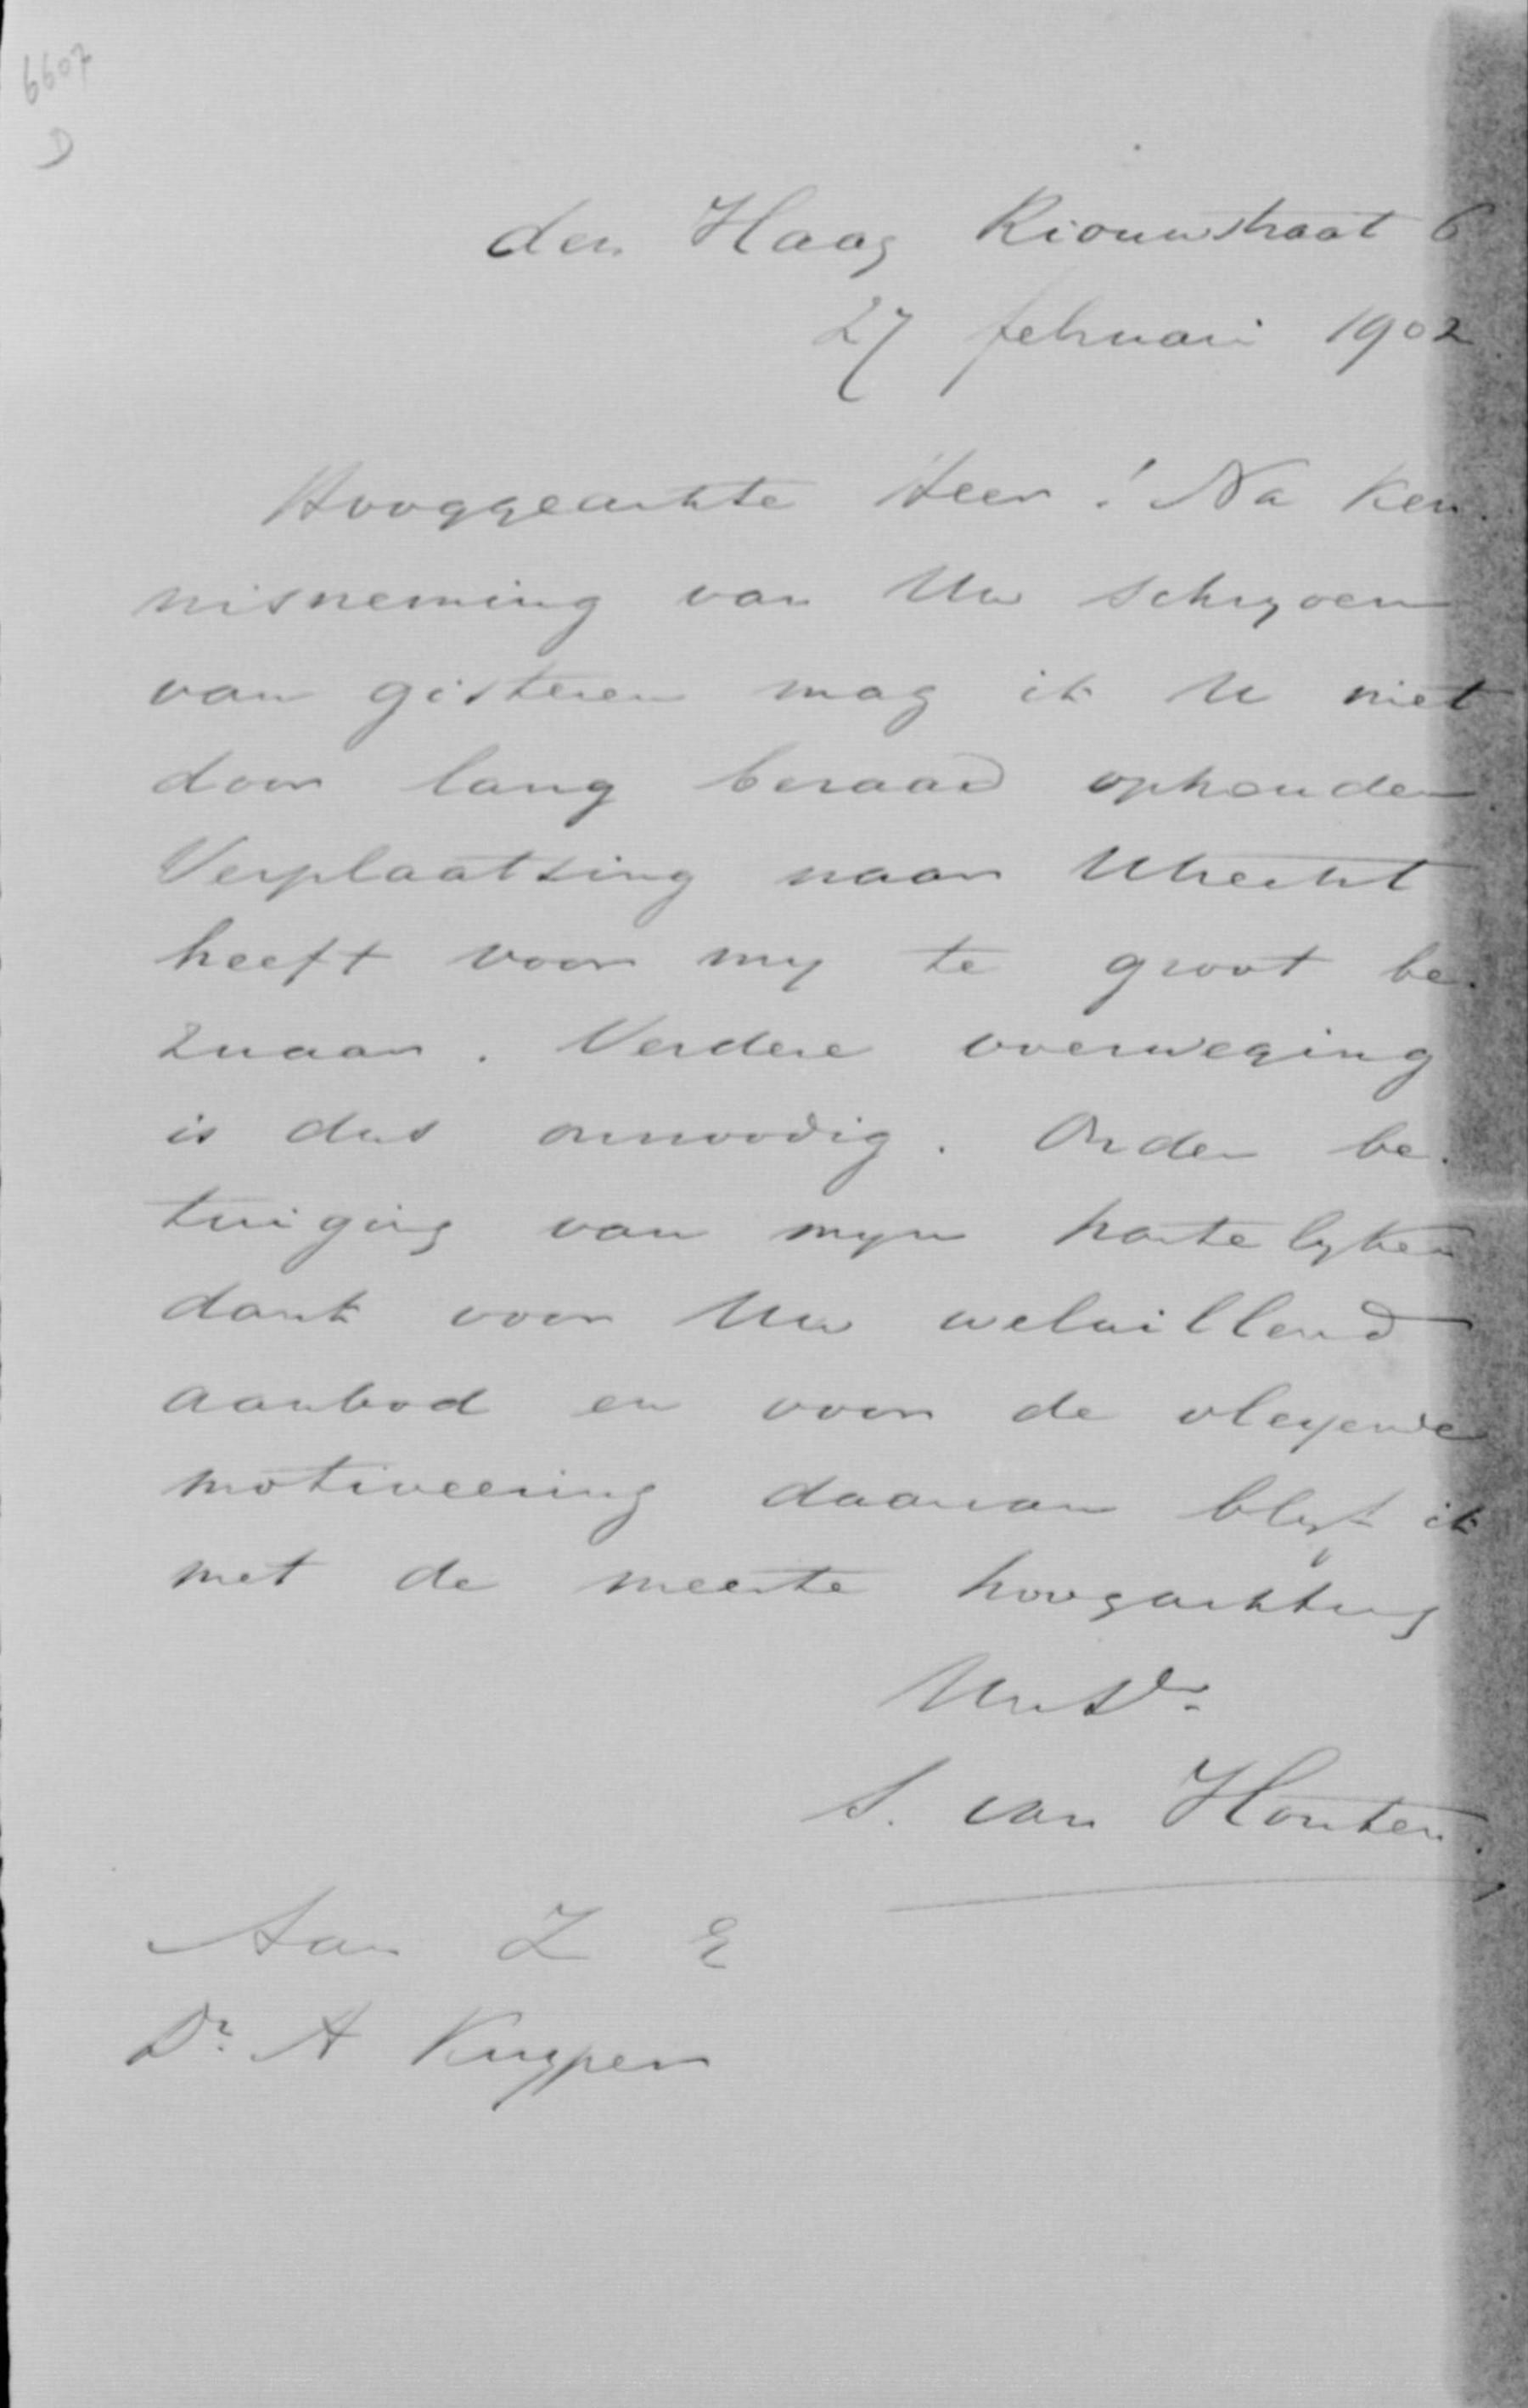 6607
D
den Haag Riouwstraat 6
27 februari 1902
Hooggeachte Heer! Na ken-
nisneming van Uw schryven
van gisteren mag ik U niet
door lang beraad ophouden.
Verplaatsing naar Utrecht
heeft voor my te groot be-
zwaar. Verdere overweging
is dus onnoodig. Onder be-
tuiging van myn hartelyken
dank voor Uw welwillend
aanbod en voor de vleyende
motiveering daarvan blyf ik
met de meeste hoogachting
S. van Houten.
Aan Z E
Dr. A Kuyper